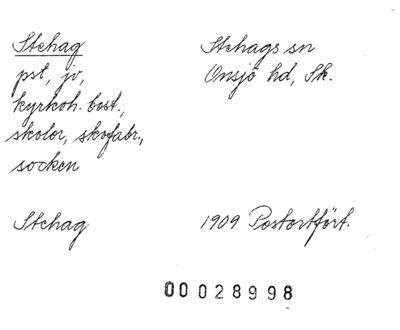 Stehag
Stehags sn
pst, jv,
Onsjö hd, Sk.
kyrkoh. bost.,
skolor, skofabr.,
socken
Stehag
1909 Postortfört.
00 028998